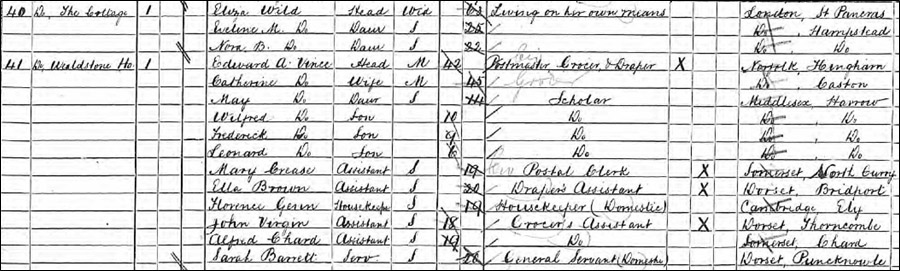 40 Do, The Cottage 1 Eliza Wild Head Wid 63 Living on her own means London, St Pancras
Eveline M. Do Daur S 25 Do, Hampstead
Nora B. Do Daur S 22 Do, Do
41 Do, Waldstone Ho. 1 Edward A. Vince Head M 42 Postmaster Grocer & Draper X Norfolk, Hingham
Catherine Do Wife M 45 Do, Caston
May Do Daur S 14 Scholar Middlesex, Harrow
Wilfred Do Son 10 Do Do, Do
Frederick Do Son 9 Do Do, Do
Leonard Do Son 8 Do Do, Do
Mary Crease Assistant S 19 Postal Clerk X Somerset, North Curry
Ella Brown Assistant S 20 Draper's Assistant X Dorset, Bridport
Florence Housekeeper S 19 Housekeeper (Domestic) Cambridge, Ely
John Virgin Assistant S 18 Grocer's Assistant X Dorset, Thorncombe
Alfred Chard Assistant S 19 (Do) Somerset, Chard
Sarah Barrett Serv S 20 General Servant (Domestic) Dorset, Puncknowle